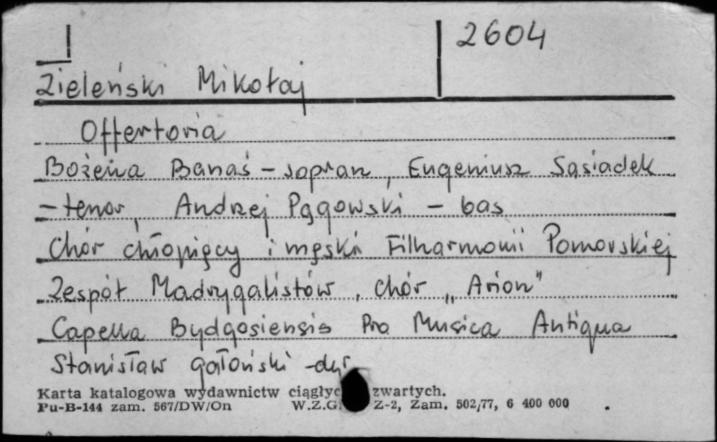 2604
Zieleński Mikołaj
Offertoria
Bożena Banaś - sopran, Eugeniusz Sąsiadek
- tenor, Andrzej Pągowski - bas
Chór chłopięcy i męski Filharmonii Pomorskiej
Zespół Madrygalistów, chór „Arion"
Capella Bydgosiensis Pro Musica Antiqua
Stanisław Gałoński - dyr
Karta katalogowa wydawnictw zwartych.
Pu-B-144 zam. 567/DW/On W.Z.G. Z-2, Zam. 502/77, 6 400 000